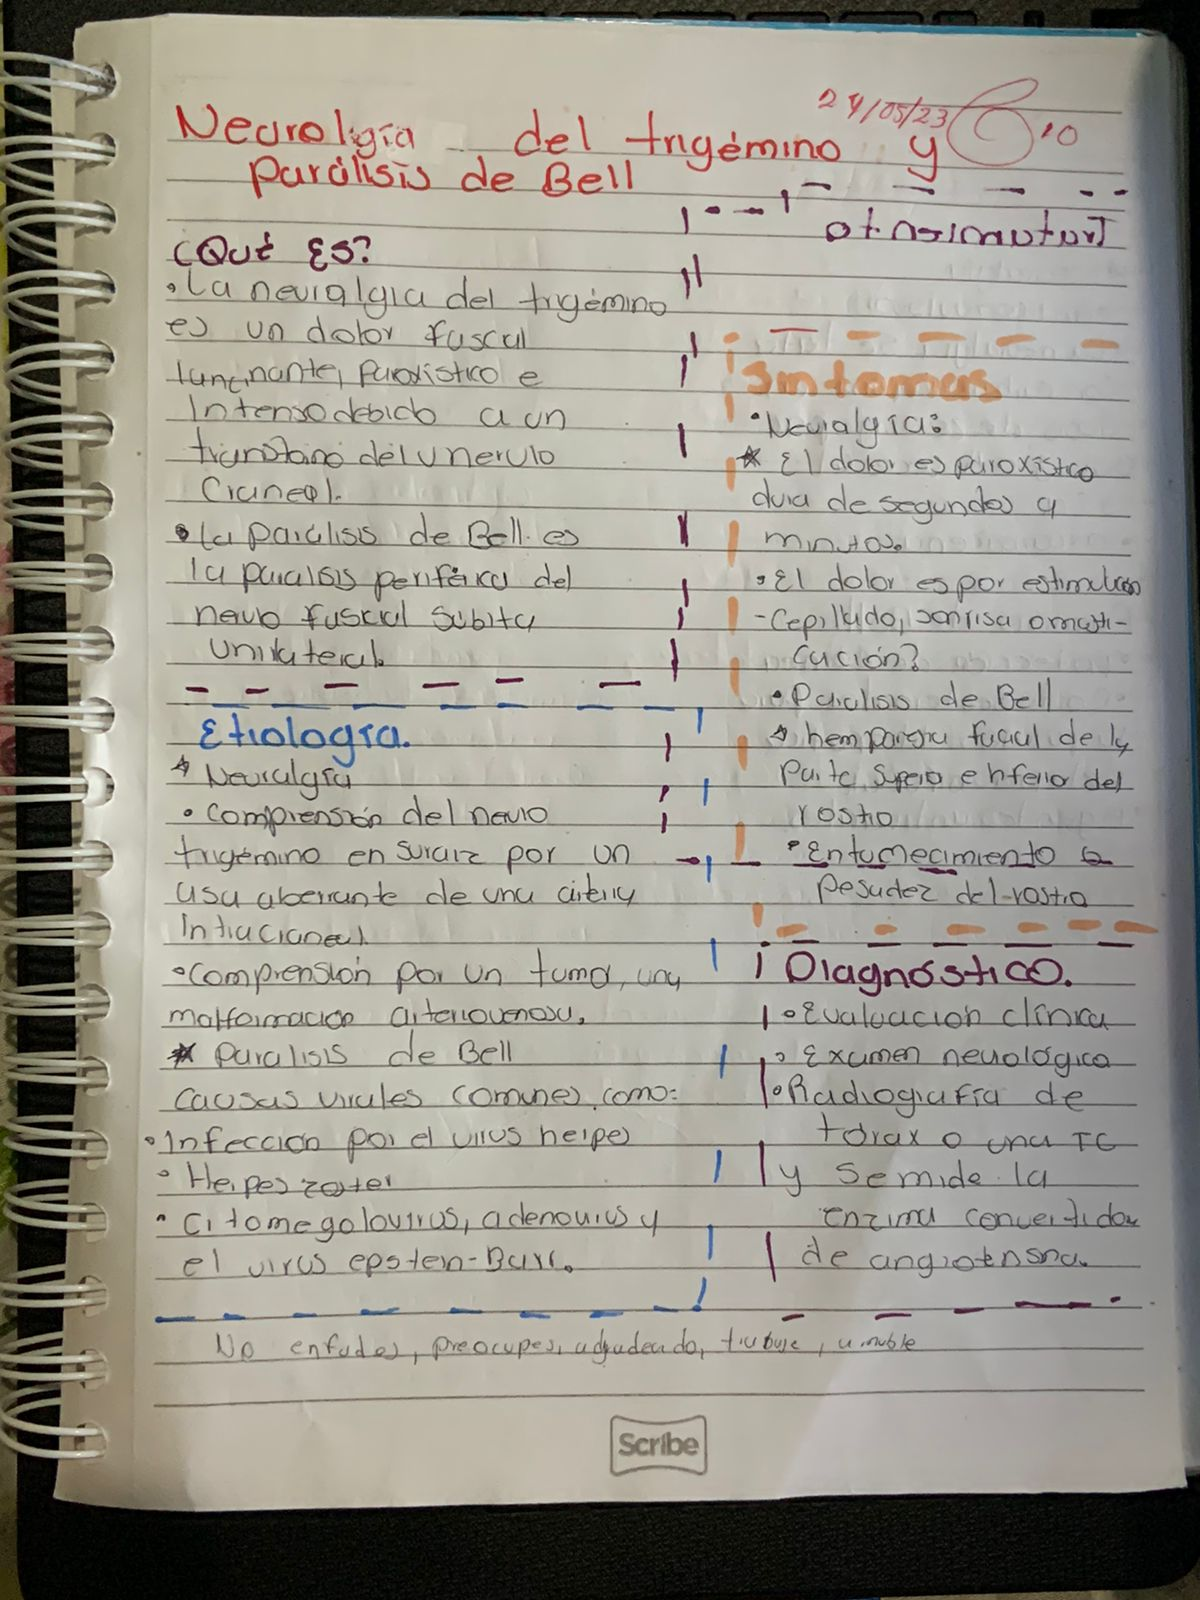 24/05/23 10
Neurolgía del trigémino y
Parálisis de Bell
Tratamiento
¿Qué Es?
• La neuralgia del trigémino
es un dolor fascal
luncinante, paroxístico e
Intenso debido a un
del V nervio
Craneal.
• La parálisis de Bell es
la paralisis periférica del
nervo fascial Súbita
Unilateral.
Etiología.
* Neuralgía
• Comprensión del nervio
trigémino en su raiz por un
asa aberrante de una arteria
Intracraneal
• Comprensión por un tumor, una
malformacion arteriovenosa.
* Paralisis de Bell
Causas virales comunes, como:
• Infección por el virus herpes
• Herpes zoster
• Citomegalovirus, adenovirus y
el virus epstein-Barr.
Sintomas
• Neuralgía:
* El dolor es paroxístico
dura de segundos a
minutos.
• El dolor es por estimulación
- Cepillado, sonrisa o masti-
cación?
• Paralisis de Bell
* hemparesia facial de la
Parte Superio e Inferio del
rostro
• Entumecimiento o
Pesadez del rostro
Diagnóstico.
• Evaluación clínica
• Examen neurológico
• Radiografía de
tórax o una TC
y se mide la
enzima convertidor
de angiotensna.
No enfades, preocupes, agradecido, trabaje, amable
Scribe